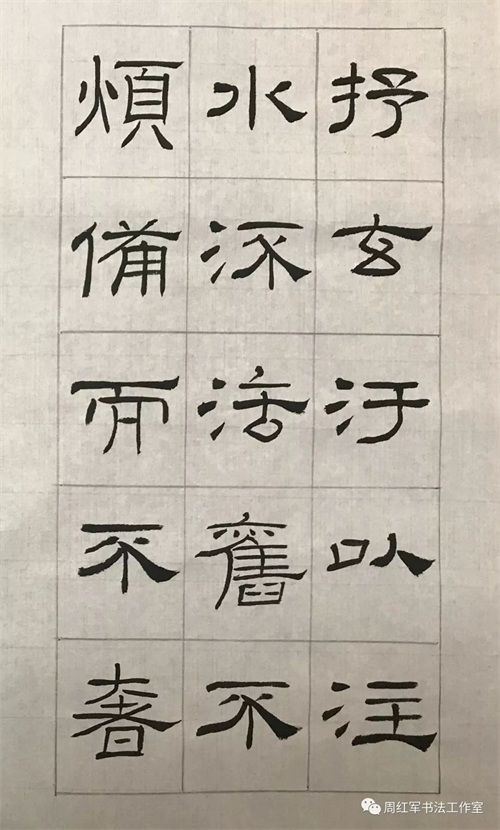 抒玄汙以注
水流法舊不
煩備而不奢
周红军书法工作室